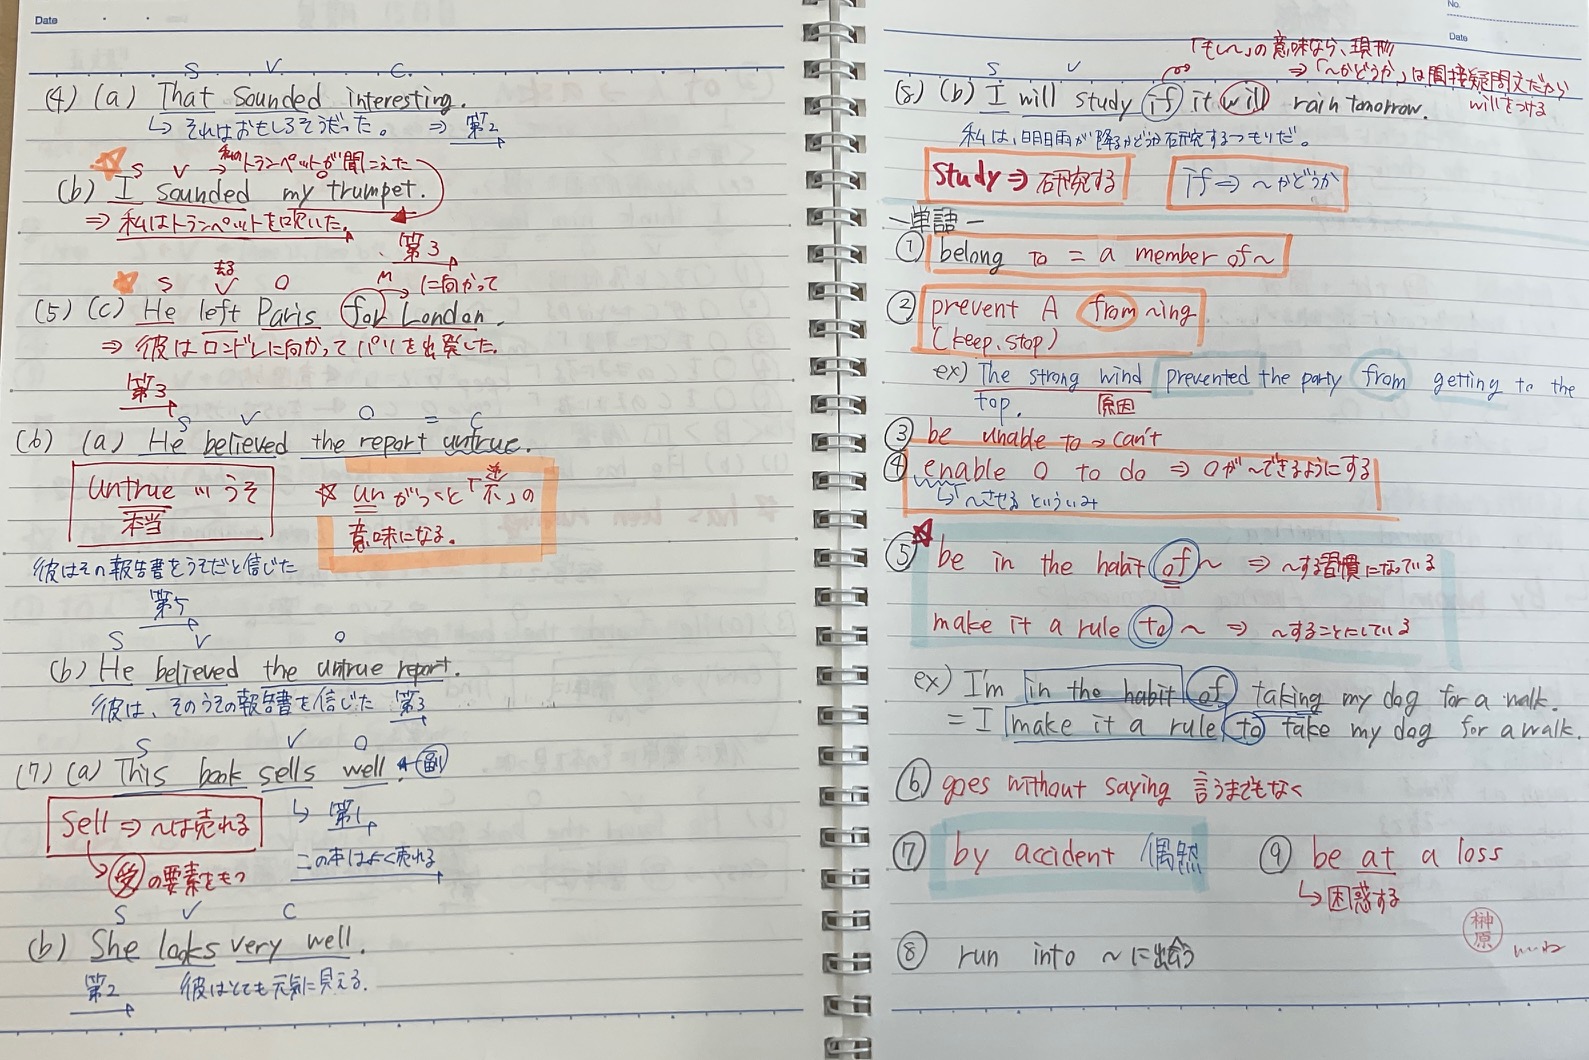 Date
S V C
(4) (a) That sounded interesting.
↳ それはおもしろそうだった。 ⇒ 第2
☆ S V → 私のトランペットが聞こえた
(b) I sounded my trumpet.
⇒ 私はトランペットを吹いた。
第3
☆ S V 去る O M → に向かって
(5) (c) He left Paris for London.
⇒ 彼はロンドンに向かってパリを出発した。
第3
S V O = C
(6) (a) He believed the report untrue.
untrue … うそ
本当
☆ un がつくと「不」の
意味になる。
彼はその報告書をうそだと信じた
第5
S V O
(b) He believed the untrue report.
彼は、そのうその報告書を信じた 第3
S V O
(7) (a) This book sells well. ← 副
sell ⇒ 〜は売れる
↳ 第1
→ 受の要素をもつ
この本はよく売れる
S V C
(b) She looks very well.
第2 彼はとても元気に見える.
No.
Date
「もし〜」の意味なら、現在形
⇒「〜かどうか」は間接疑問文だから
willをつける
S V
(8) (b) I will study if it will rain tomorrow.
私は、明日雨が降るかどうか研究するつもりだ。
study ⇒ 研究する
if ⇒ 〜かどうか
ー単語ー
① belong to = a member of〜
② prevent A from 〜ing
(keep.stop)
ex) The strong wind prevented the party from getting to the
top. 原因
③ be unable to → can't
④ enable O to do ⇒ Oが〜できるようにする
↳「〜させる といういみ
☆
⑤ be in the habit of 〜 ⇒ 〜する習慣になっている
make it a rule to 〜 ⇒ 〜することにしている
ex) I'm in the habit of taking my dog for a walk.
= I make it a rule to take my dog for a walk.
⑥ goes without saying 言うまでもなく
⑦ by accident 偶然
⑨ be at a loss
↳ 困惑する
⑧ run into 〜に出会う
榊原